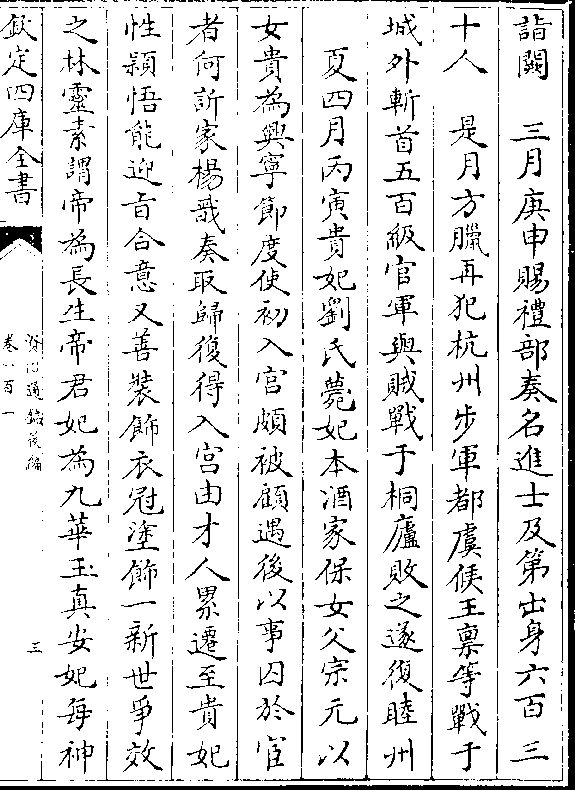 詣闕　三月庚申賜禮部奏名進士及第出身六百三
十人　是月方臘再犯杭州步軍都虞候王禀等戰于
城外斬首五百級官軍與賊戰于桐廬敗之遂復睦州
夏四月丙寅貴妃劉氏薨妃本酒家保女父宗元以
女貴為興寧節度使初入宮頗被顧遇後以事囚於宦
者何訢家楊戩奏取歸復得入宮由才人累遷至貴妃
性穎悟能迎旨合意又善裝飾衣冠塗飾一新世爭效
之林靈素謂帝為長生帝君妃為九華玉真安妃每神
欽定四庫全書
資治通鑑後編
卷一百一
三